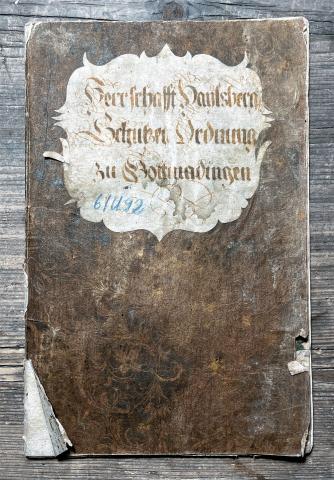 Herrschafft Haulsberg
Schützen Ordnung
zu Gottmadingen
61492